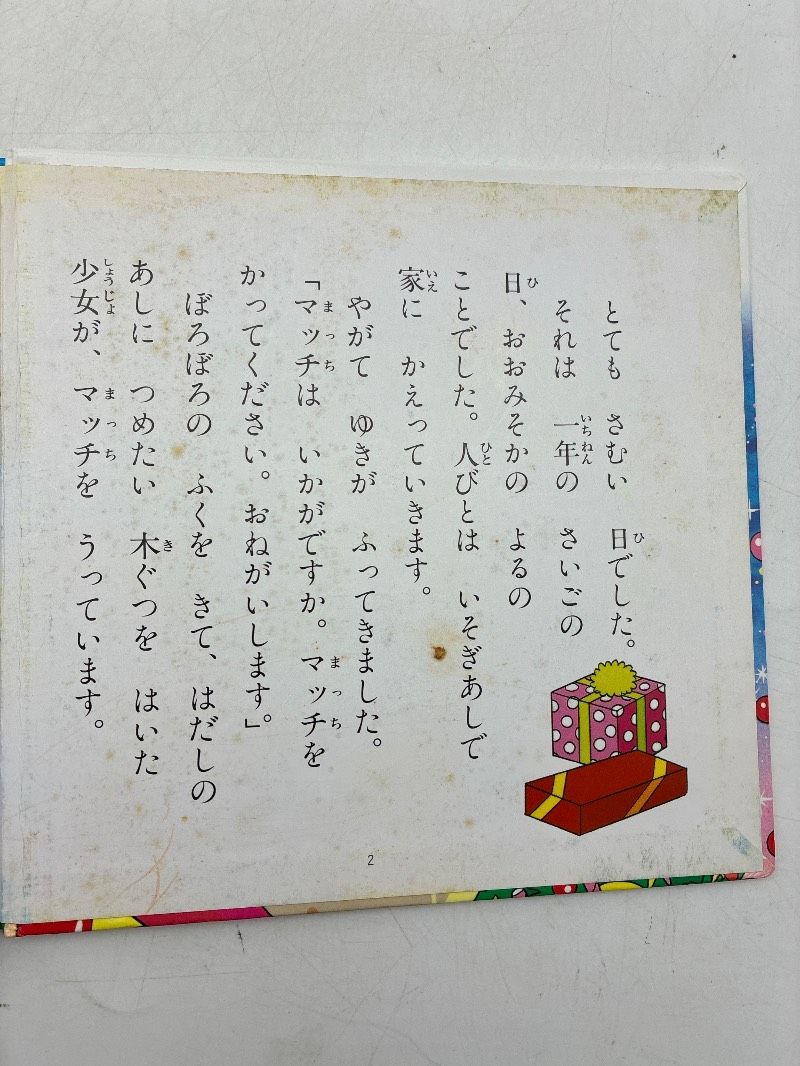 とても　さむい　日でした。
それは　一年の　さいごの
日、おおみそかの　よるの
ことでした。人びとは　いそぎあしで
家に　かえっていきます。
やがて　ゆきが　ふってきました。
「マッチは　いかがですか。マッチを
かってください。おねがいします」。
ぼろぼろの　ふくを　きて、はだしの
あしに　つめたい　木ぐつを　はいた
少女が、マッチを　うっています。
2